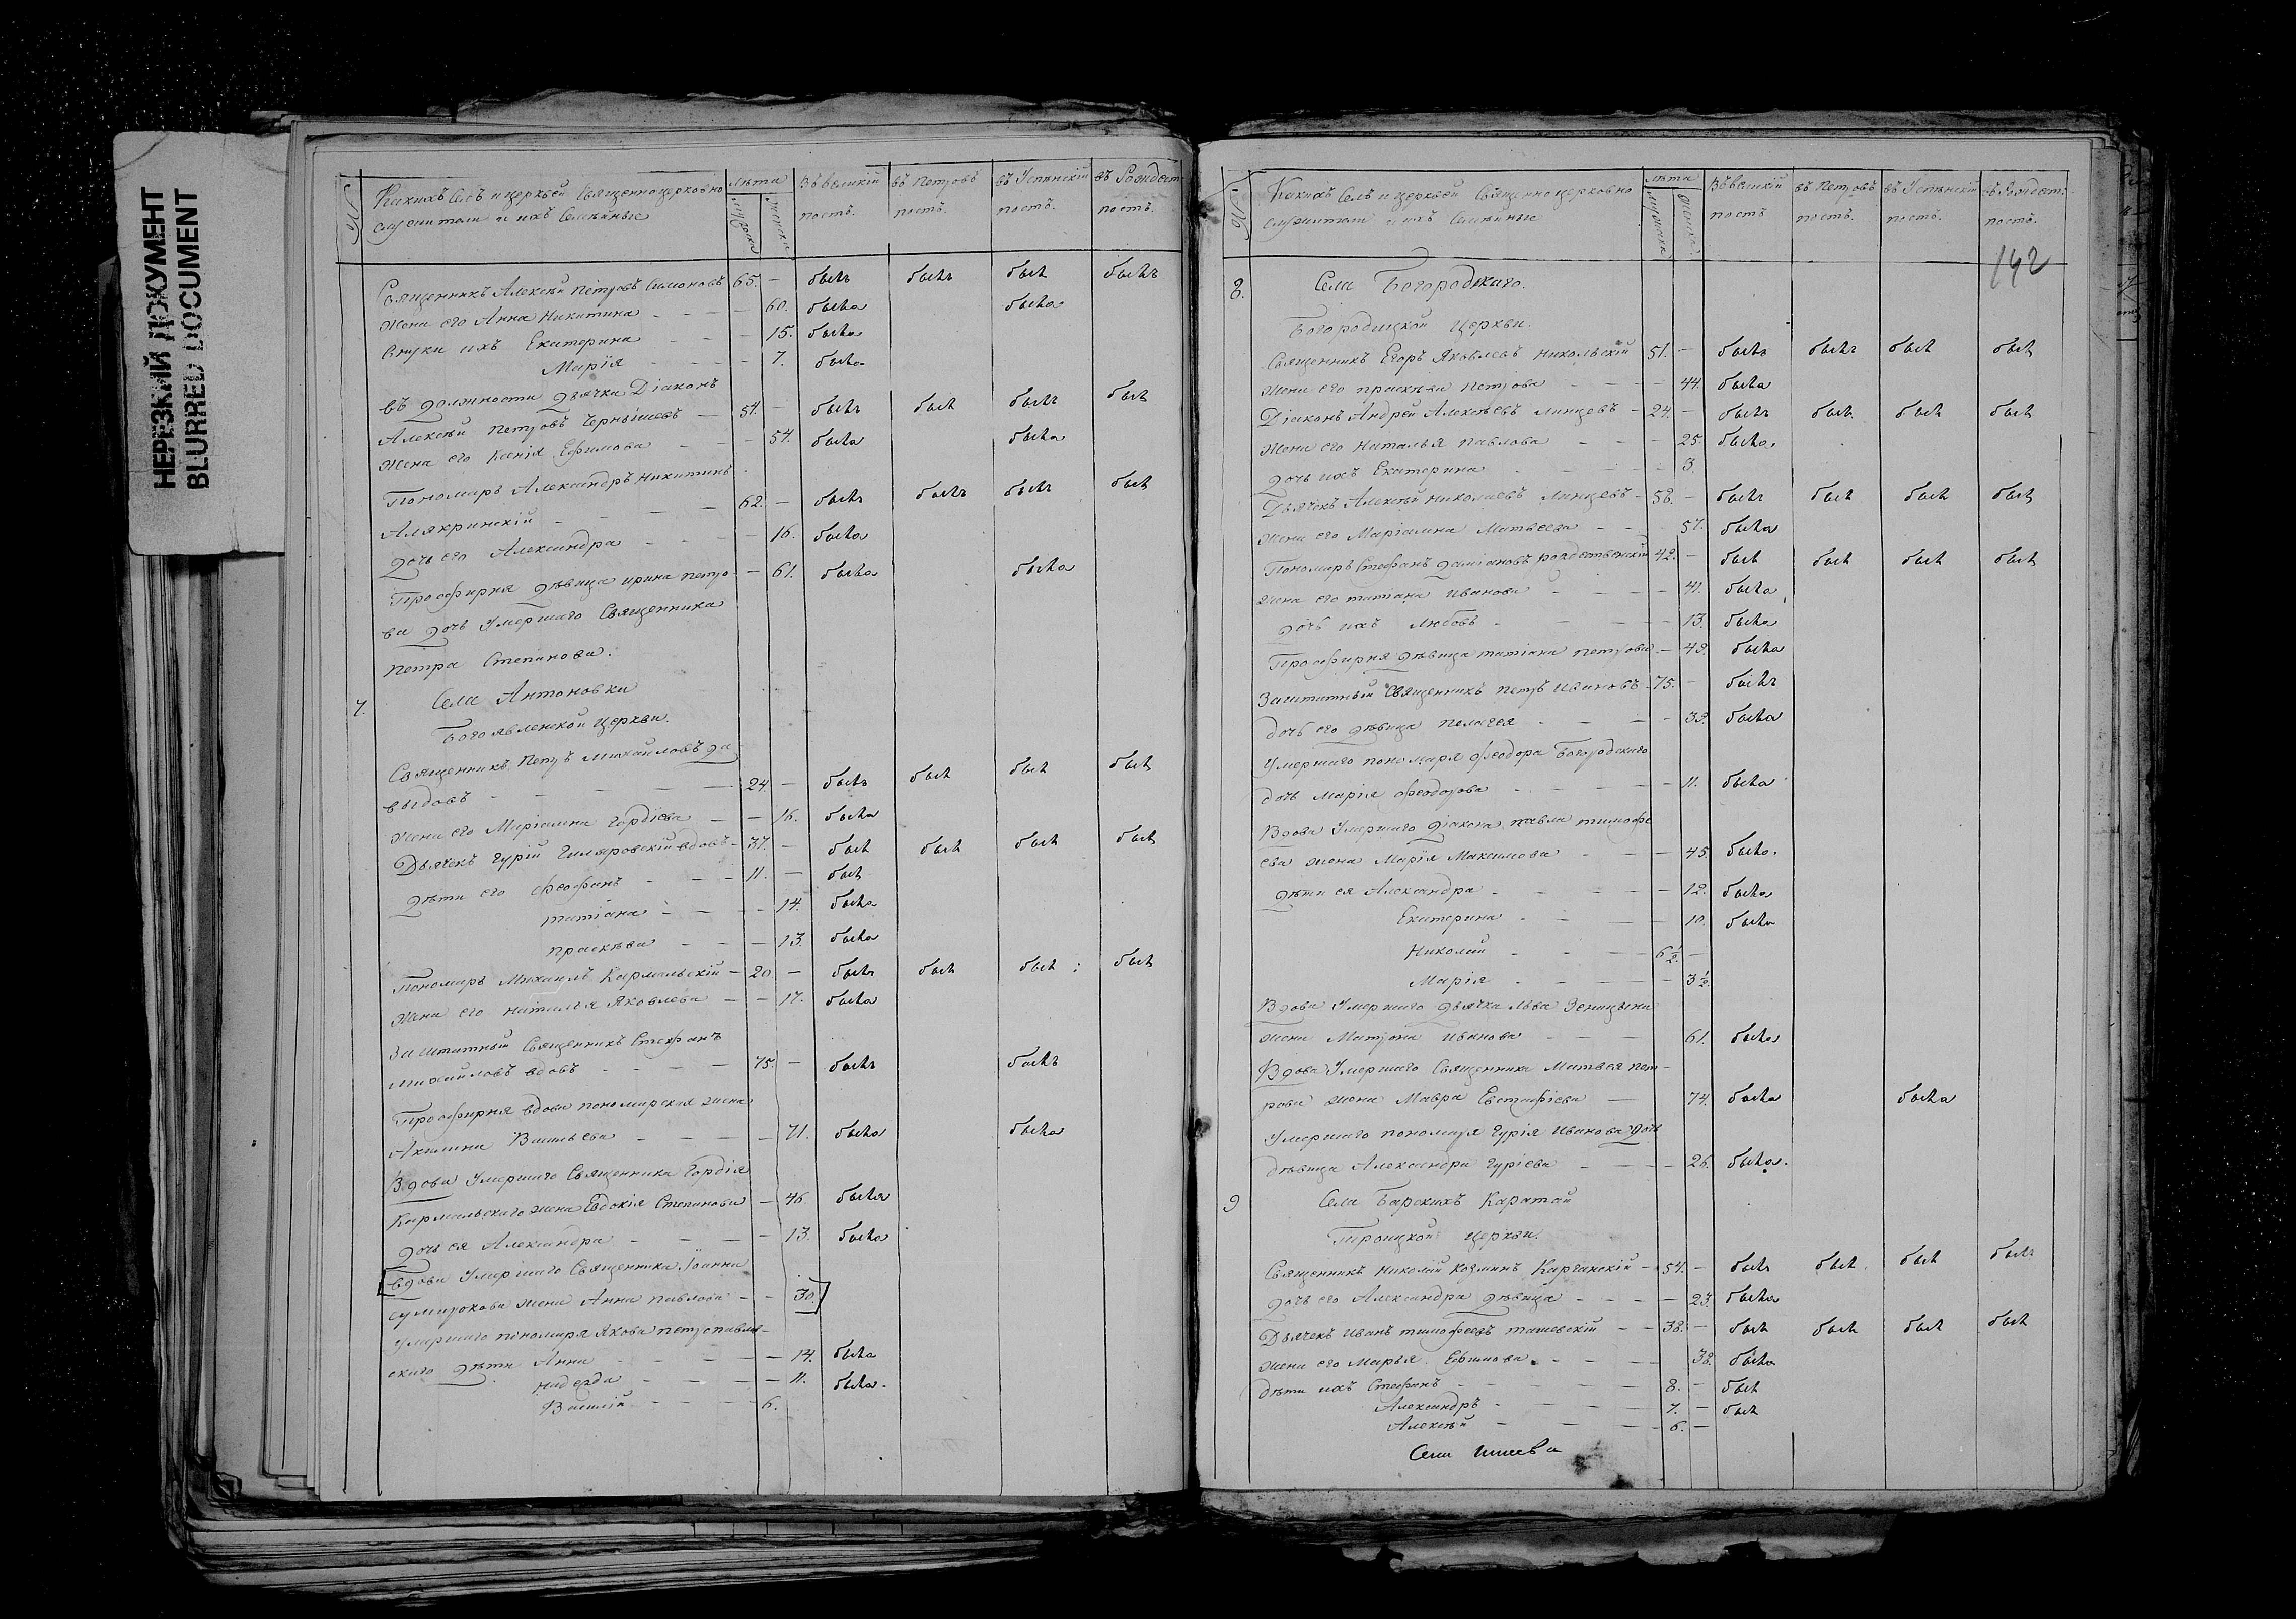 НЕРЕЗКИЙ ДОКУМЕНТ
BLURRED DOCUMENT
№ Какихъ Селъ и церквей Священноцерковно лѣта Въ великій въ Петровъ въ Успѣнскій въ Рождест:
служители и ихъ Семѣйные мужска женска постъ. постъ. постъ. постъ.
Священникъ Алексѣй Петровъ Симоновъ 65. — былъ былъ былъ былъ
Жена его Анна Никитина — 60. была была
Внуки ихъ Екатерина — 15. была
Марія — 7. была
въ должности дьячка Діаконъ
Алексѣй Петровъ Чернышевъ — 54. — былъ былъ былъ былъ
Жена его Ксенія Ефимова — 54. была была
Пономарь Александръ Никитинъ
Алякринскій — 62. — былъ былъ былъ былъ
дочь его Александра — 16. была
Просфирня дѣвица Ирина Петро- — 61. была была
ва дочь Умершаго Священника
Петра Степанова.
7. Села Антоновки
Богоявленской Церкви.
Священникъ Петръ Михайловъ Да
выдовъ — 24. — былъ былъ былъ былъ
Жена его Маріамна Гордіева — 16. была
Дьячекъ Гурій Гиляровскій вдовъ — 37. — былъ былъ былъ былъ
дѣти его Феофанъ — 11. — былъ
Татіана — 14. была
Праскѣва — 13. была
Пономарь Михаилъ Кармальскій — 20. — былъ былъ былъ былъ
Жена его Наталья Яковлева — 17. была
Заштатный Священникъ Стефанъ
Михайловъ вдовъ — 75. — былъ былъ
Просфирня вдова пономарская жена
Акилина Васильева — 71. была была
Вдова Умершаго Священника Гордія
Кармальскаго жена Евдокія Степанова — 46. была
дочь ея Александра — 13. была
Вдова Умершаго Священника Іоанна
Сумарокова жена Анна Павлова — 30.
Умершаго пономаря Якова Петропавлов-
скаго дѣти Анна — 14. была
Надежда — 11. была.
Василій — 6.
№ Какихъ Селъ и церквей Священноцерковно лѣта Въ великій въ Петровъ въ Успѣнскій въ Рождест:
служители и ихъ Семѣйные мужска женска постъ постъ. постъ. постъ.
142
8. Села Богородскаго.
Богородицкой Церкви.
Священникъ Егоръ Яковлевъ Никольскій 51. — былъ былъ былъ былъ
Жена его Праскѣва Петрова — 44. была
Діаконъ Андрей Алексѣевъ Линцевъ — 24. — былъ былъ былъ былъ
Жена его Наталья Павлова — 25 была
дочь ихъ Екатерина — 3.
Дьячекъ Алексѣй Николаевъ Линцевъ — 58. — былъ былъ былъ былъ
Жена его Маріамна Матвеева — 57. была
Пономарь Стефанъ Даміановъ Рождественскій 42. — былъ былъ былъ былъ
Жена его Татіана Иванова — 41. была
дочь ихъ Любовь — 13. была
Просфирня дѣвица Татіана Петрова — 49. была
Заштатный Священникъ Петръ Ивановъ 75. — былъ
дочь его дѣвица Пелагея — 39. была
Умершаго пономаря Феодора Богородскаго
дочь Марія Феодорова — 11. была
Вдова Умершаго Діакона Павла Тимофе
ева жена Марія Максимова — 45. была.
дѣти ея Александра — 12. была
Екатерина — 10. была
Николай — 6½ —
Марія — 3½.
Вдова Умершаго дьячка Льва Зеницына
жена Матрона Иванова — 61. была
Вдова Умершаго Священника Матвея Пет-
рова жена Мавра Евстафіева — 74. была была
Умершаго пономаря Гурія Иванова дочь
дѣвица Александра Гуріева — 26. была.
9 Села Барскихъ Каратай
Троицкой Церкви.
Священникъ Николай Козминъ Карганскій — 54. — былъ былъ былъ былъ
дочь его Александра дѣвица — 23. была
Дьячекъ Иванъ Тимофеевъ Ташевскій — 38. — былъ былъ былъ былъ
жена его Марья Ефимова — 38. была
дѣти ихъ Стефанъ — 8. — былъ
Александръ — 7. — былъ
Алексѣй — 6. —
Села